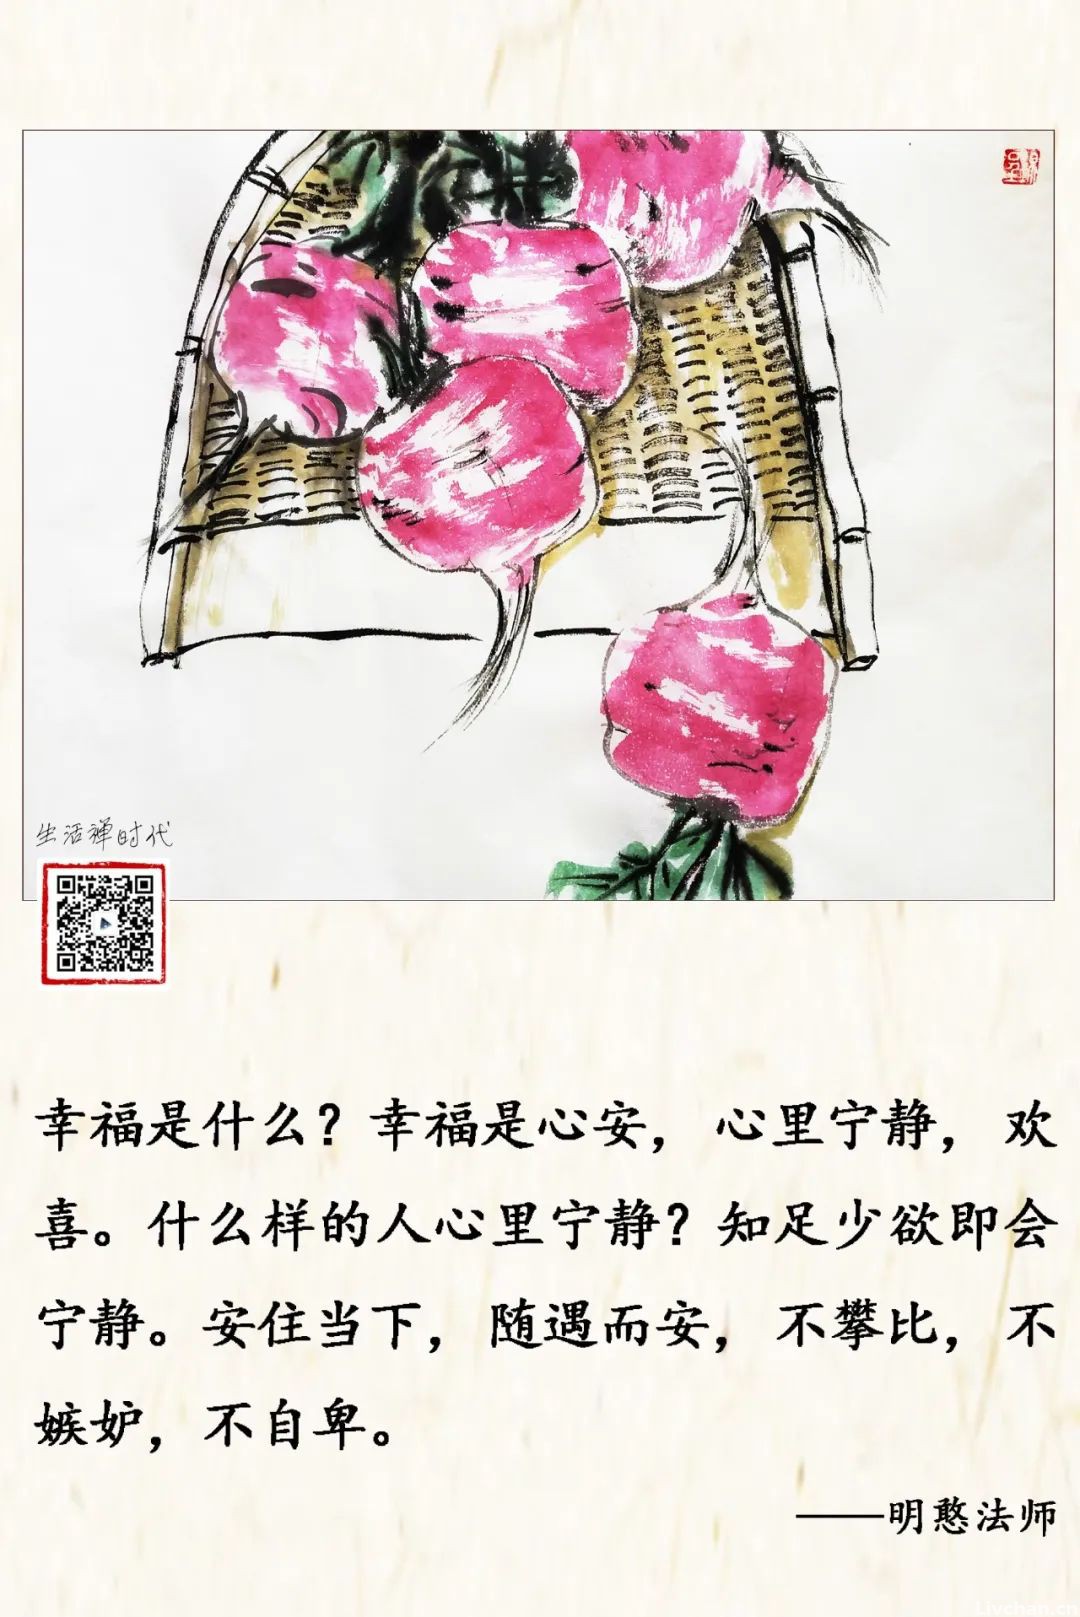 生活禅时代
幸福是什么？幸福是心安，心里宁静，欢
喜。什么样的人心里宁静？知足少欲即会
宁静。安住当下，随遇而安，不攀比，不
嫉妒，不自卑。
——明憨法师
Livchan.cn